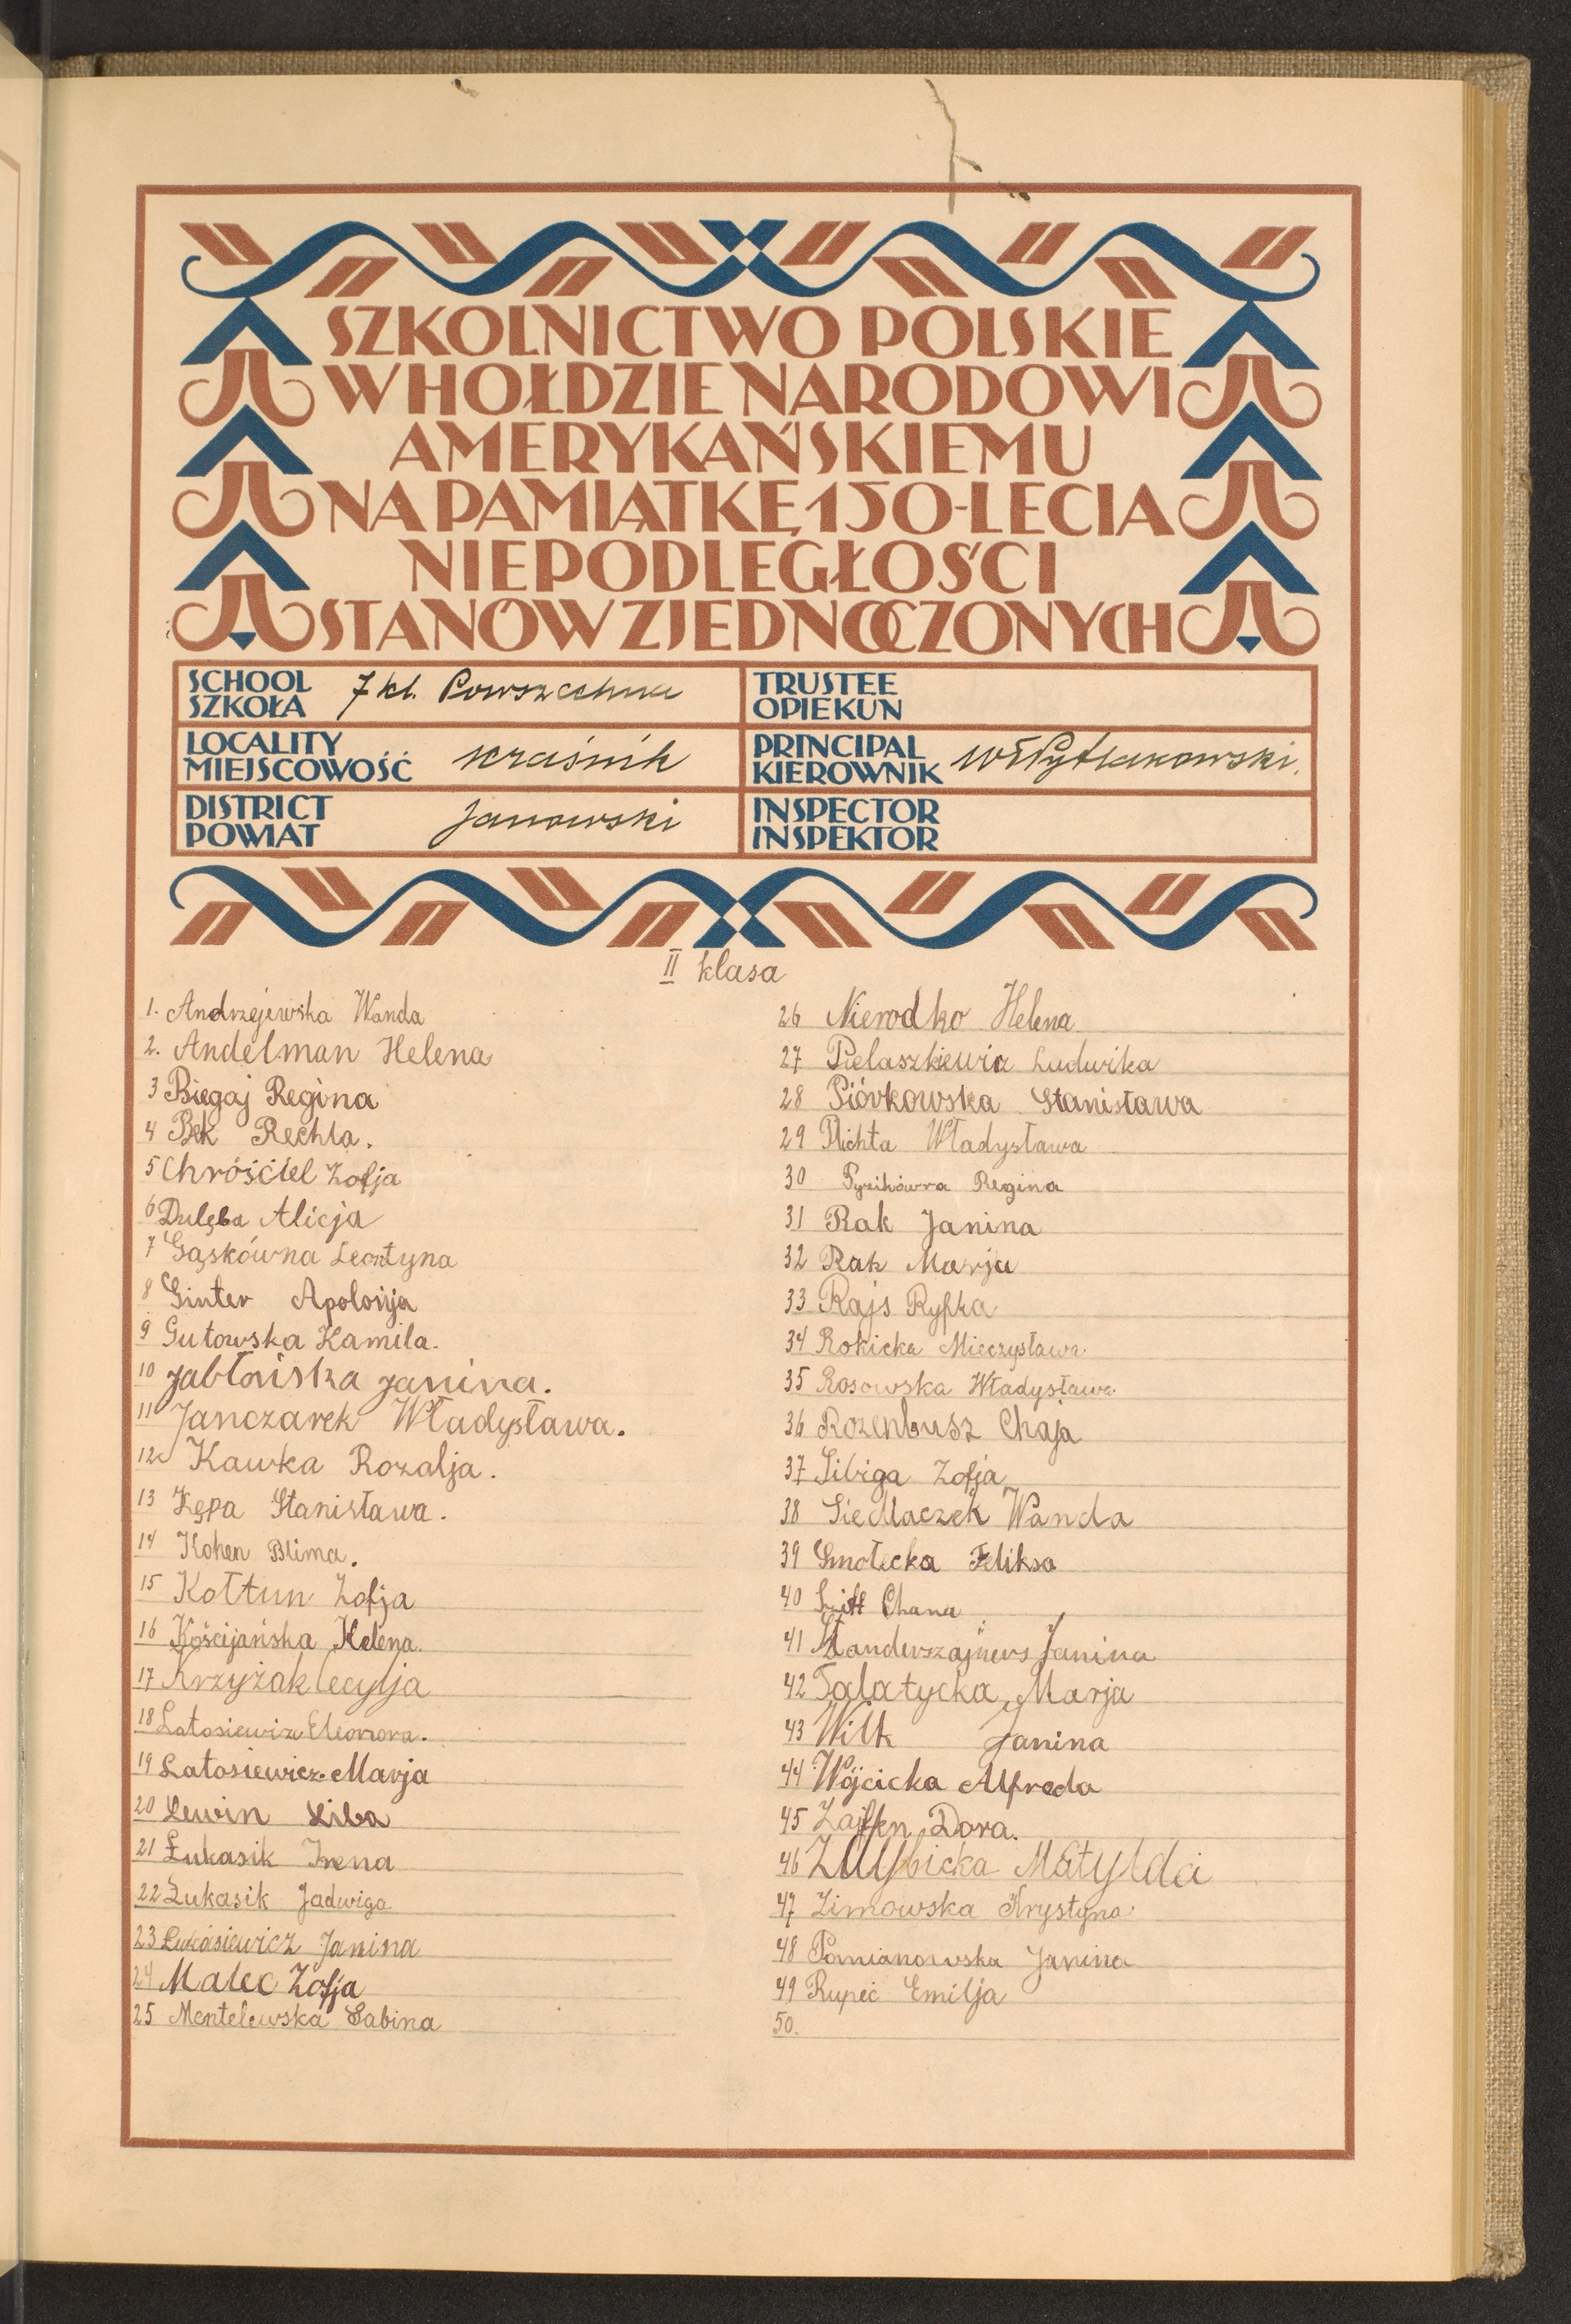 SZKOLNICTWO POLSKIE
W HOŁDZIE NARODOWI
AMERYKAŃSKIEMU
NA PAMIĄTKĘ 150-LECIA
NIEPODLEGŁOŚCI
STANÓW ZJEDNOCZONYCH
SCHOOL
SZKOŁA
7 kl. Powszechna
TRUSTEE
OPIEKUN
LOCALITY
MIEJSCOWOŚĆ
Kraśnik
PRINCIPAL
KIEROWNIK
Wł Pytlakowski.
DISTRICT
POWIAT
Janowski
INSPECTOR
INSPEKTOR
II klasa
1. Andrzejewska Wanda
2. Andelman Helena
3 Biegaj Regina
4 Bek Rechla.
5 Chróściel Zofja
6 Dulęba Alicja
7 Gąskówna Leontyna
8 Ginter Apolonja
9 Gutowska Kamila.
10 Jabłońska Janina.
11 Janczarek Władysława.
12 Kawka Rozalja.
13 Kępa Stanisława.
14 Kohen Blima.
15 Kołtun Zofja
16 Kościjańska Helena.
17 Krzyżak Cecylja
18 Latosiewicz Eleonora.
19 Latosiewicz Marja
20 Lewin Liba
21 Łukasik Irena
22 Łukasik Jadwiga
23 Łukasiewicz Janina
24 Malec Zofja
25 Mentelewska Sabina
26 Nierodko Helena
27 Pielaszkiewicz Ludwika
28 Piórkowska Stanisława
29 Plichta Władysława
30 Regina
31 Rak Janina
32 Rak Marja
33 Rajs Ryfka
34 Rokicka Mieczysława
35 Rosowska Władysława
36 Rozenbusz Chaja
37 Sibiga Zofja
38 Siedlaczek Wanda
39 Smolicka Feliksa
40 Chana
41 Janina
42 Talatycka Marja
43 Wilk Janina
44 Wójcicka Alfreda
45 Zajfen Dora.
46 Matylda
47 Zimowska Krystyna
48 Pomianowska Janina
49 Rupeć Emilja
50.